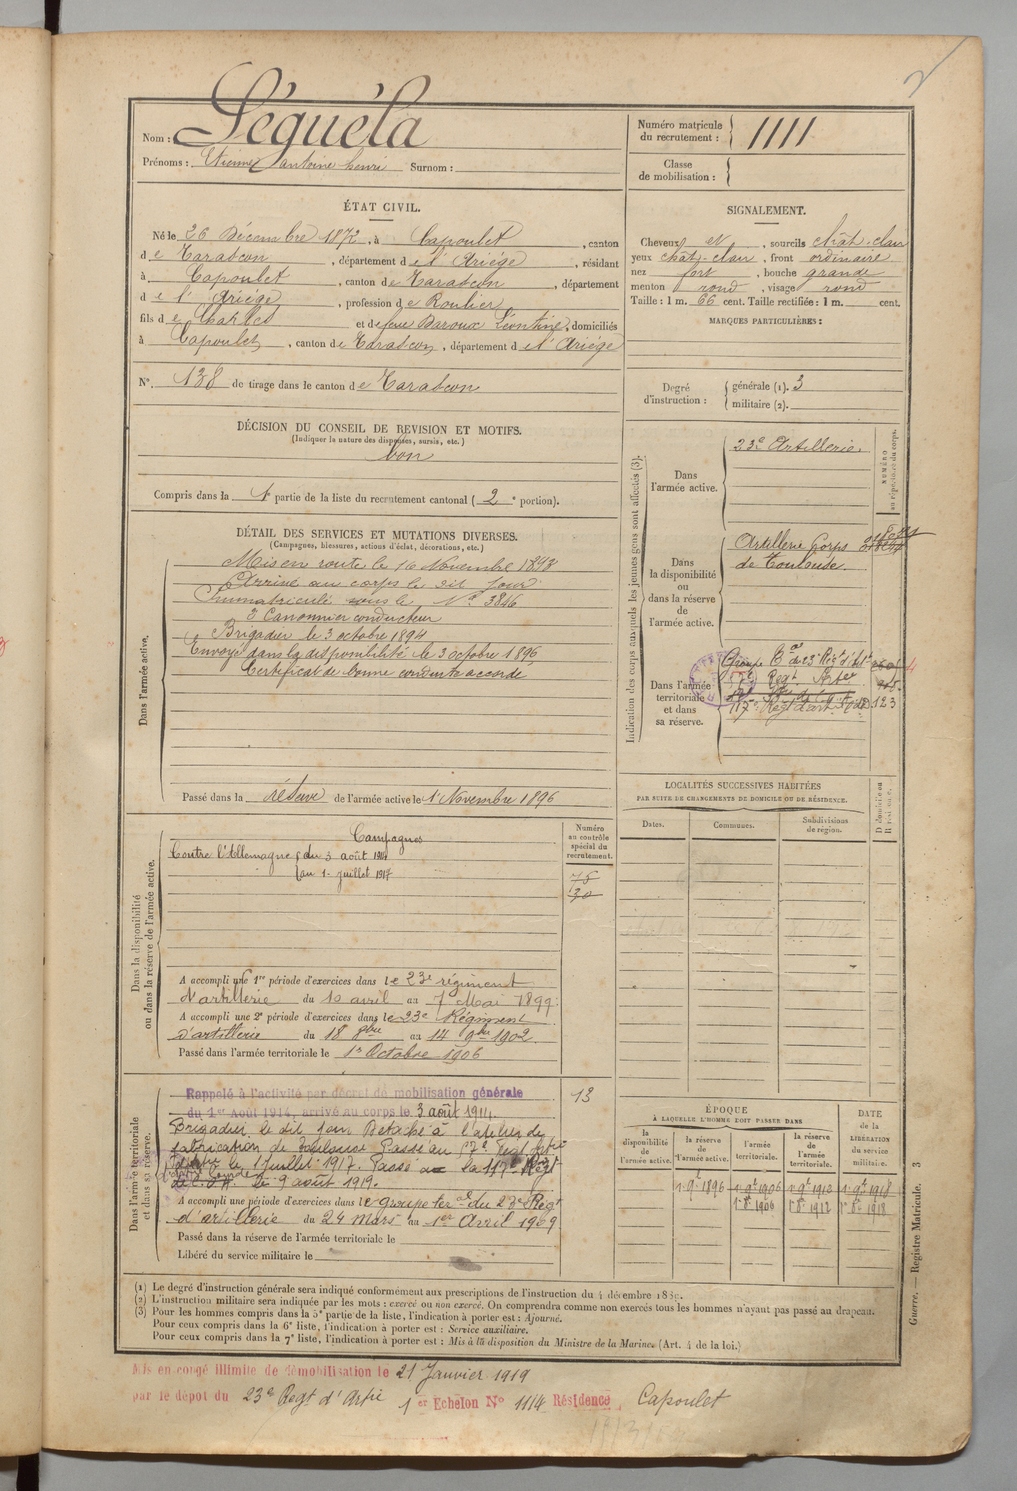 Nom : Séguéla
Prénoms : Etienne Antoine henri Surnom :
Numéro matricule du recrutement : 1111
Classe de mobilisation :
ÉTAT CIVIL.
Né le 26 Décembre 1872, à Capoulet, canton
de Tarascon, département de l'Ariége, résidant
à Capoulet, canton de Tarascon, département
de l'Ariége, profession de Roulier
fils de Charles et de feue Baroux Léontine, domiciliés
à Capoulet, canton de Tarascon, département de l'Ariége
N° 138 de tirage dans le canton de Tarascon
SIGNALEMENT.
Cheveux et, sourcils chât-clair
yeux chât-clair, front ordinaire
nez fort, bouche grande
menton rond, visage rond
Taille : 1 m. 66 cent. Taille rectifiée : 1 m. cent.
MARQUES PARTICULIÈRES :
Degré d'instruction : générale (1). 3
militaire (2).
DÉCISION DU CONSEIL DE REVISION ET MOTIFS.
(Indiquer la nature des dispenses, sursis, etc.)
bon
Compris dans la 1 partie de la liste du recrutement cantonal (2e portion).
DÉTAIL DES SERVICES ET MUTATIONS DIVERSES.
(Campagnes, blessures, actions d'éclat, décorations, etc.)
Dans l'armée active.
Mis en route le 16 Novembre 1893
Arrivé au corps le dit jour
Immatriculé sous le No 3846
2e Canonnier conducteur
Brigadier le 3 octobre 1894
Envoyé dans la disponibilité le 3 octobre 1896
Certificat de bonne conduite accordé
Passé dans la réserve de l'armée active le 1 Novembre 1896
Indication des corps auxquels les jeunes gens sont affectés (3).
NUMÉRO au répertoire du corps.
Dans l'armée active.
23e Artillerie.
Dans la disponibilité ou dans la réserve de l'armée active.
Artillerie Corps
de Toulouse.
Dans l'armée territoriale et dans sa réserve.
Groupe Eal de 23e Régt d'Art
117e Régt d'art 123
LOCALITÉS SUCCESSIVES HABITÉES
PAR SUITE DE CHANGEMENTS DE DOMICILE OU DE RÉSIDENCE.
Dates. Communes. Subdivisions de région. Domicile ou Résidence.
Dans la disponibilité ou dans la réserve de l'armée active.
Numéro au contrôle spécial du recrutement.
75
30
Campagnes
Contre l'Allemagne du 3 août 1914
au 1er juillet 1917
A accompli une 1re période d'exercices dans le 23e régiment
d'artillerie du 10 avril au 7 Mai 1899.
A accompli une 2e période d'exercices dans le 23e Régiment
d'artillerie du 18 8bre au 14 9bre 1902.
Passé dans l'armée territoriale le 1r Octobre 1906
Dans l'armée territoriale et dans sa réserve.
13
Rappelé à l'activité par décret de mobilisation générale
du 1er Août 1914, arrivé au corps le 3 août 1914.
Brigadier le dit jour Détaché à l'atelier de
fabrication de Toulouse Passé au 57e Régt
d'Artie le 1 juillet 1917. Passé au 117e Régt
le 9 août 1919.
A accompli une période d'exercices dans le groupe teral du 23e Régt
d'artillerie du 24 mars au 1er Avril 1909
Passé dans la réserve de l'armée territoriale le
Libéré du service militaire le
ÉPOQUE
À LAQUELLE L'HOMME DOIT PASSER DANS
la disponibilité de l'armée active. la réserve de l'armée active. l'armée territoriale. la réserve de l'armée territoriale.
DATE de la LIBÉRATION du service militaire.
1 9e 1896 1 9e 1906 1 9e 1912 1 9e 1918
1r 8e 1906 1r 8e 1912 1r 8e 1918
Guerre. — Registre Matricule. 3
(1) Le degré d'instruction générale sera indiqué conformément aux prescriptions de l'instruction du 4 décembre 1889.
(2) L'instruction militaire sera indiquée par les mots : exercé ou non exercé. On comprendra comme non exercés tous les hommes n'ayant pas passé au drapeau.
(3) Pour les hommes compris dans la 5e partie de la liste, l'indication à porter est : Ajourné.
Pour ceux compris dans la 6e liste, l'indication à porter est : Service auxiliaire.
Pour ceux compris dans la 7e liste, l'indication à porter est : Mis à la disposition du Ministre de la Marine. (Art. 4 de la loi.)
Mis en congé illimité de démobilisation le 21 Janvier 1919
par le dépot du 23e Regt d'Artie 1er Echelon No 1114 Résidence Capoulet